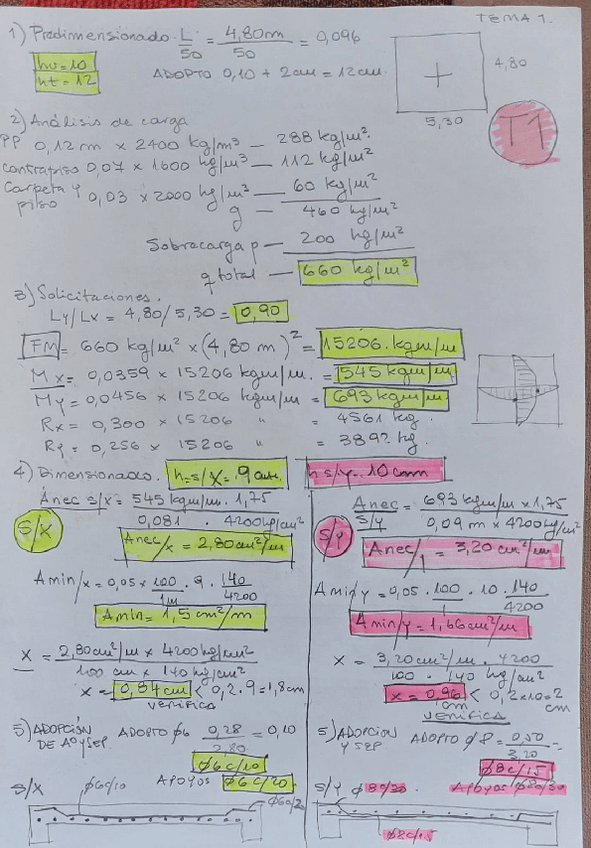 TEMA 1.
1) Predimensionado. L/50 = 4,80m/50 = 0,096
hu=10
ht=12
ADOPTO 0,10 + 2cm = 12cm.
4,80
5,30
T1
2) Análisis de carga
PP 0,12 m x 2400 kg/m³ — 288 kg/m².
contrapiso 0,07 x 1600 kg/m³ — 112 kg/m²
Carpeta y piso 0,03 x 2000 kg/m³ — 60 kg/m²
g — 460 kg/m²
Sobrecarga p — 200 kg/m²
q total — 660 kg/m²
3) Solicitaciones.
Ly/Lx = 4,80/5,30 = 0,90
FM = 660 kg/m² x (4,80 m)² = 15206. kgm/m
Mx = 0,0359 x 15206 kgm/m. = 545 kgm/m,
My = 0,0456 x 15206 kgm/m = 693 kgm/m.
Rx = 0,300 x 15206 " = 4561 kg.
Ry = 0,256 x 15206 " = 3892 kg.
4) Dimensionado. h=s/x = 9 cm.
h s/y = 10 cm
S/X
Anec s/x = 545 kgm/m. 1,75 / 0,081 . 4200 kg/cm²
Anec/x = 2,80 cm²/m
A min/x = 0,05 x 100/1m . 9 . 140/4200
A min = 1,5 cm²/m
X = 2,80cm²/m x 4200 kg/cm² / 100 cm x 140 kg/cm²
x = 0,84 cm < 0,2 . 9 = 1,8cm
verifica
S/y
Anec s/y = 693 kgm/m x 1,75 / 0,09 m x 4200 kg/cm²
Anec/ = 3,20 cm²/m
A min y = 0,05 . 100/1 . 10 . 140/4200
A min/y = 1,66 cm²/m
x = 3,20 cm²/m . 4200 / 100 . 140 kg/cm²
x = 0,96 cm < 0,2x10=2 cm
VERIFICA
5) ADOPCIÓN DE Aº y SEP. ADOPTO ϕ6 0,28/2,80 = 0,10
ϕ6 c/10
APOYOS ϕ6 c/20
S/X
ϕ6c/10
ϕ6c/20
5) ADOPCION Y SEP. ADOPTO ϕ8 = 0,50/3,20 =
ϕ8c/15
S/Y ϕ8c/30 Apoyos ϕ8c/30
ϕ8c/15